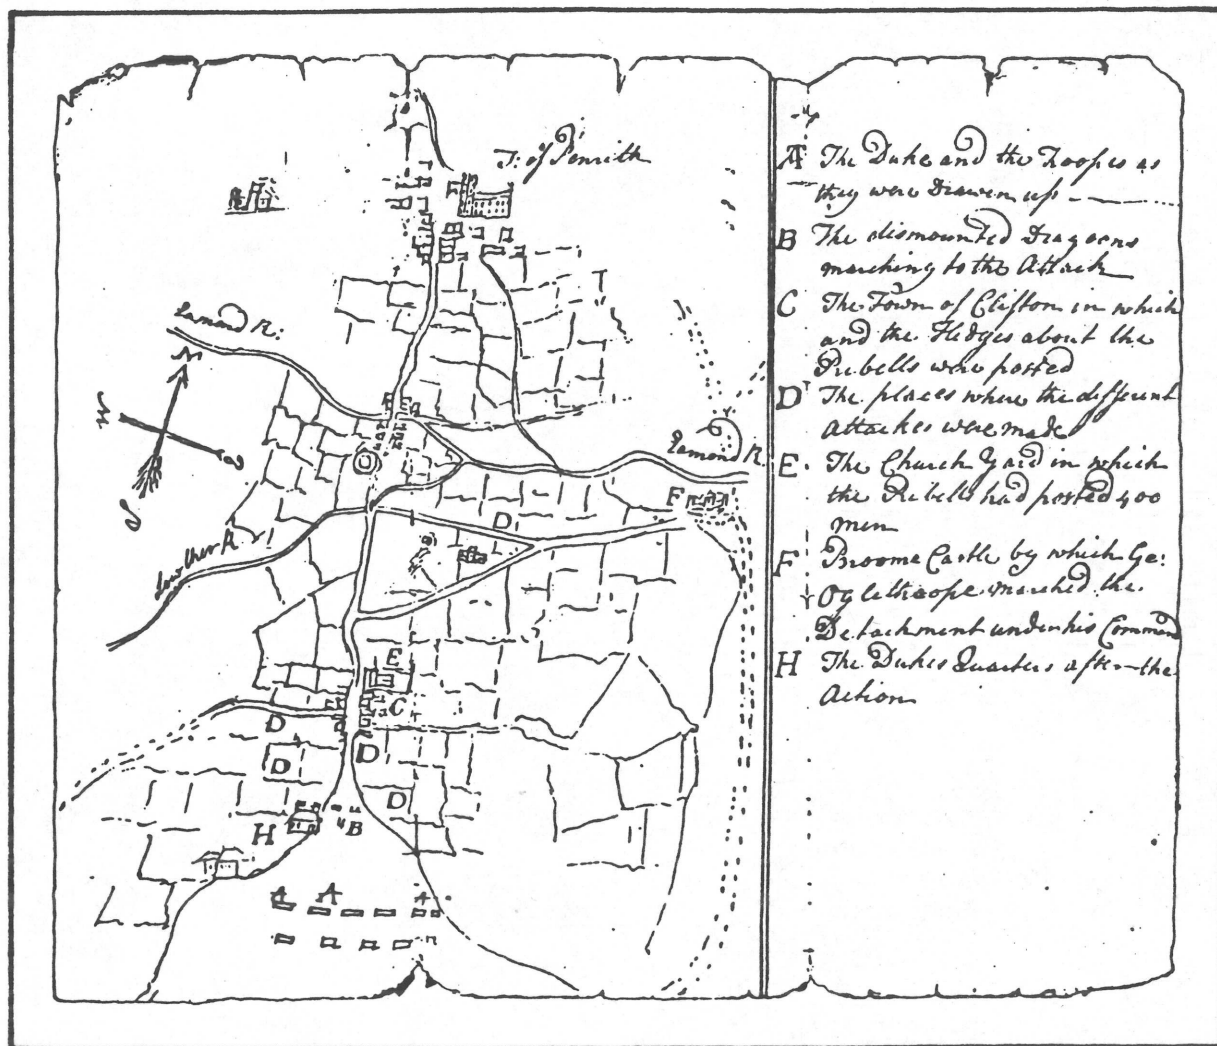 T: of Penrith
Eamond R:
N
W
S
Eamond R
Lowther R
F
D
E
C
D
D
D
D
H
B
A
A
A
A The Duke and the Troopes as
they were Drawen up
B The dismounted Dragoens
marching to the Attack
C The Town of Clifton in which
and the Hedges about the
Rebells were posted
D The places where the different
Attackes were made
E. The Church Yard in which
the Rebells had posted 400
men
F Broome Castle by which Ge:
Oglethorpe marched the
Detachment under his Command
H The Dukes Quarters after the
Action